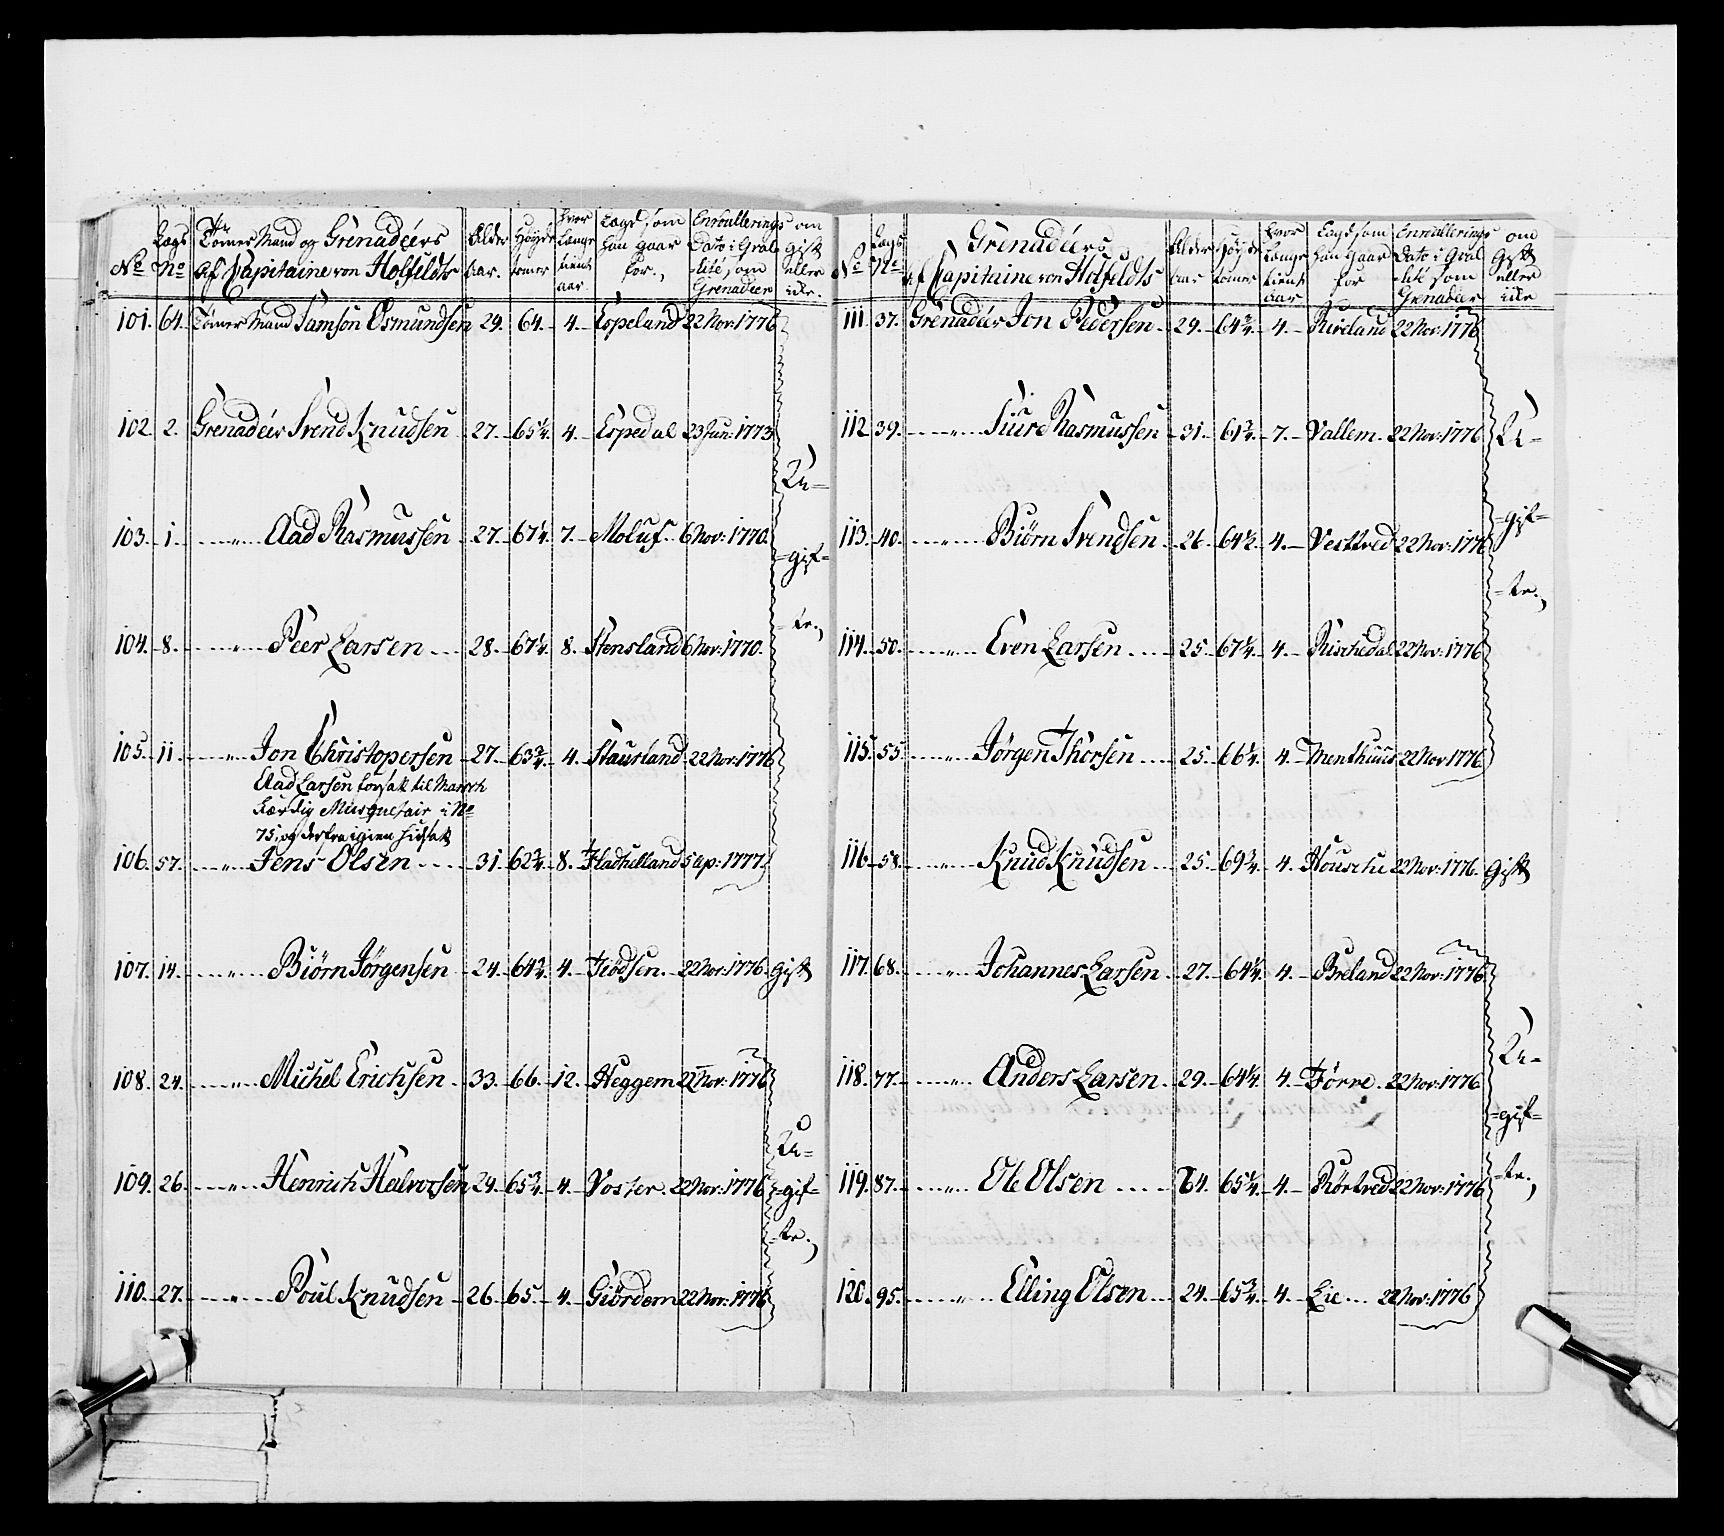 No Lægs no Tömer Mand og Grenadeers Af Capitaine von Holfeldts Alder aar. Høyde tomer Hvor Længe tient aar. Lægd som han gaar for., Enroullerings Dato i Qvalité som Grenadeer om Gift eller icke.
101. 64. Tömer Mand Samson Osmundsen 29. 64. 4. Espeland 22 Nov: 1776
102. 2. Grenadeer Svend Knudsen 27. 65 1/4. 4. Espedal 23 Jun: 1773
U=
103. 1. —"— Aad Rasmussen 27. 67 1/4. 7. Moluf 6 Nov: 1770.
=gif=
=te.,
104. 8. —"— Peer Larsen 28. 67 1/4. 8. Stensland 6 Nov: 1770.
105. 11. —"— Jon Christopersen 27. 63 3/4. 4. Stausland 22 Nov: 1776
Aad Larsen forsat til March
færdig Musquetair i No
75, og derfra igien hidsat
106. 57. —"— Jens Olsen 31. 62 3/4. 8. Fladhelland 5 Ap: 1777.
107. 14. —"— Biörn Jörgensen 24. 64 3/4. 4. Fiödsen. 22 Nov: 1776. Gift
108. 24. —"— Michel Erichsen 33. 66. 12. Heggem 22 Nov: 1776
U=
109. 26. —"— Henrich Halvorsen 29. 65 3/4. 4. Voster. 22 Nov: 1776 =gif=
=te.,
110. 27. —"— Poul Knudsen 26. 65. 4. Giördem 22 Nov: 1776
No Lægs No Grenadeers Af Capitaine von Holfeldts Alder aar Høyde tomer Hvor Længe tient aar Lægd som han gaar for Enroullerings Dato i Qvalité som Grenadeer om Gift eller icke
111. 37. Grenadeer Jon Pedersen 29. 64 3/4. 4. Riveland 22 Nov: 1776
112. 39. —"— Siurd Rasmussen 31. 61 3/4. 7. Vallem. 22 Nov: 1776 U=
=gif=
113. 40. —"— Biörn Svendsen 26. 64 1/2. 4. Vesttved 22 Nov: 1776
=te.,
114. 50. —"— Even Larsen 25. 67 1/4. 4. Rischedal 22 Nov: 1776
115. 55. —"— Jørgen Thorsen 25. 66 1/4. 4. Menthuus 22 Nov: 1776
116. 58. —"— Knud Knudsen 25. 69 3/4. 4. Housche 22 Nov: 1776. Gift
117. 68. —"— Johannes Larsen 27. 64 1/4. 4. Breland 22 Nov: 1776.
U=
118. 77. —"— Anders Larsen 29. 64 1/4. 4. Förre. 22 Nov: 1776
=gif=
119. 87. —"— Ole Olsen 24. 65 1/4. 4. Rörtved 22 Nov: 1776 =te.,
120. 95. —"— Elling Olsen 24. 65 3/4. 4. Lie 22 Nov: 1776